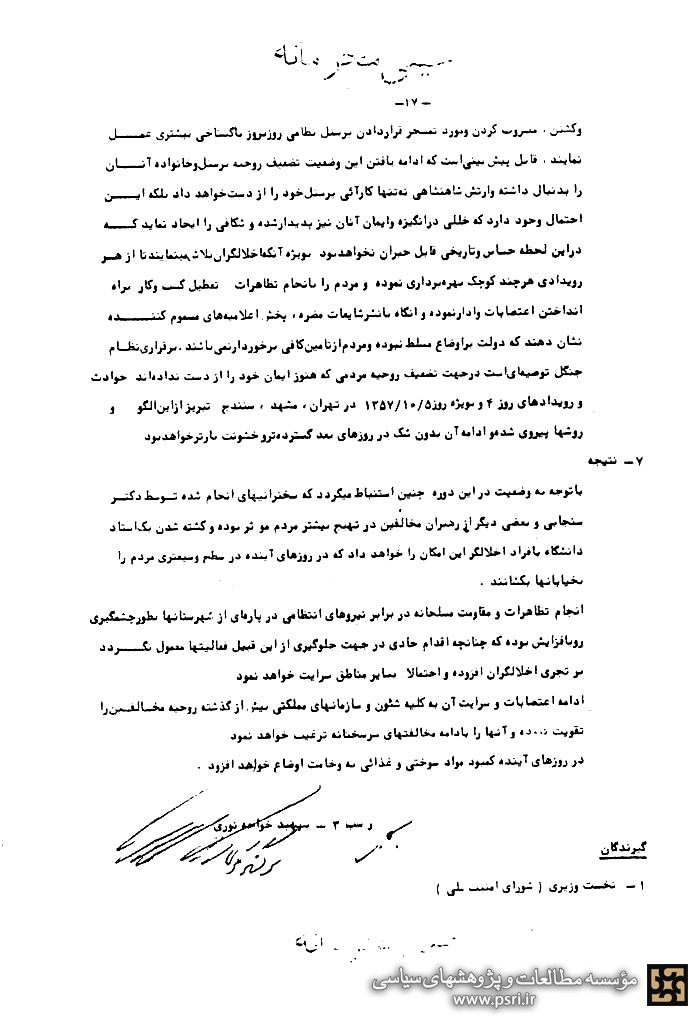 -۱۷-
وکشتن ، مضروب کردن ومورد تمسخر قراردادن پرسنل نظامی روزبروز باگستاخی بیشتری عمــل
نمایند ، قابل پیش بینی‌است که ادامه یافتن این وضعیت تضعیف روحیه پرسنل‌وخانواده آنــان
را بدنبال داشته وارتش شاهنشاهی نه‌تنها کارآئی پرسنل‌خود را از دست‌خواهد داد بلکه ایــن
احتمال وجود دارد که خللی درانگیزه وایمان آنان نیز پدیدارشده و شکافی را ایجاد نماید کــه
دراین لحظه حساس وتاریخی قابل جبران نخواهدبود بویژه آنکه‌اخلالگران‌تلاش‌مینمایندتا از هـر
رویدادی هرچند کوچک بهره‌برداری نموده و مردم را بانجام تظاهرات تعطیل کسب وکار براه
انداختن اعتصابات وادارنموده و آنگاه بانشرشایعات مضره ، پخش اعلامیه‌های مسموم کننــده
نشان دهند که دولت براوضاع مسلط نبوده ومردم‌ازتامین‌کافی برخوردارنمی‌باشند .برقراری‌نظـام
جنگل توصیه‌ای‌است درجهت تضعیف روحیه مردمی که هنوز ایمان خود را از دست نداده‌اند حوادث
و رویدادهای روز ۴ و بویژه روز۱۳۵۷/۱۰/۵ در تهران ، مشهد ، سنندج تبریز ازاین‌الگو و
روشها پیروی شده‌و ادامه آن بدون شک در روزهای بعد گسترده‌تروخشونت بارترخواهدبود
۷ - نتیجه
باتوجه به وضعیت در این دوره چنین استنباط میگردد که سخنرانیهای انجام شده توسط دکتـر
سنجابی و بعضی دیگر از رهبران مخالفین در تهییج بیشتر مردم موثر بوده و کشته شدن یک‌استاد
دانشگاه بافراد اخلالگر این امکان را خواهد داد که در روزهای آینده در سطح وسیعتری مردم را
بخیابانها بکشانند .
انجام تظاهرات و مقاومت مسلحانه در برابر نیروهای انتظامی در پاره‌ای از شهرستانها بطورچشمگیری
روبافزایش بوده که چنانچه اقدام حادی در جهت جلوگیری از این قبیل فعالیتها معمول نگــردد
بر تجری اخلالگران افزوده و احتمالا بسایر مناطق سرایت خواهد نمود
ادامه اعتصابات و سرایت آن به کلیه شئون و سازمانهای مملکتی بیش از گذشته روحیه مخـالفـین‌را
تقویت نموده و آنها را بادامه مخالفتهای سرسختانه ترغیب خواهد نمود
در روزهای آینده کمبود مواد سوختی و غذائی به وخامت اوضاع خواهد افزود .
۳ - سپهبد خواجه نوری
گیرندگان
۱ - نخست وزیری ( شورای امنیت ملی )
مؤسسه مطالعات و پژوهشهای سیاسی
www.psri.ir